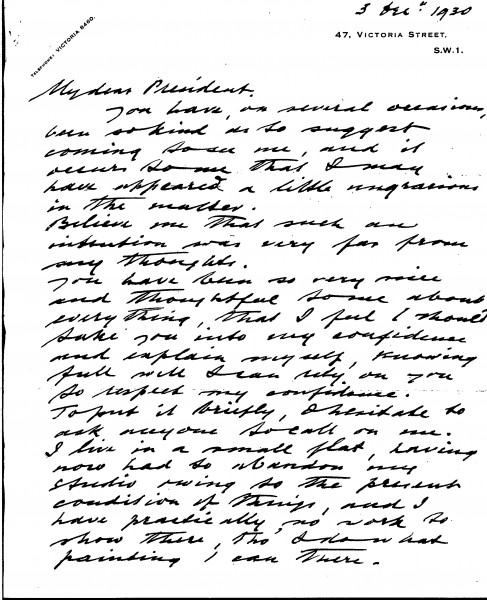 3 Dec. 1930
TELEPHONE: VICTORIA 8450.
47, VICTORIA STREET,
S.W.1.
My dear President.
You have, on several occasions,
been so kind as to suggest
coming to see me, and it
occurs to me that I may
have appeared a little ungracious
in the matter.
Believe me that such an
intention was very far from
my thoughts.
You have been so very nice
and thoughtful to me about
everything, that I feel I should
take you into my confidence
and explain myself, knowing
full well I can rely on you
to respect my confidence.
To put it briefly, I hesitate to
ask anyone to call on me.
I live in a small flat, having
now had to abandon my
studio owing to the present
condition of things, and I
have practically no work to
show there, tho' I do what
painting I can there.